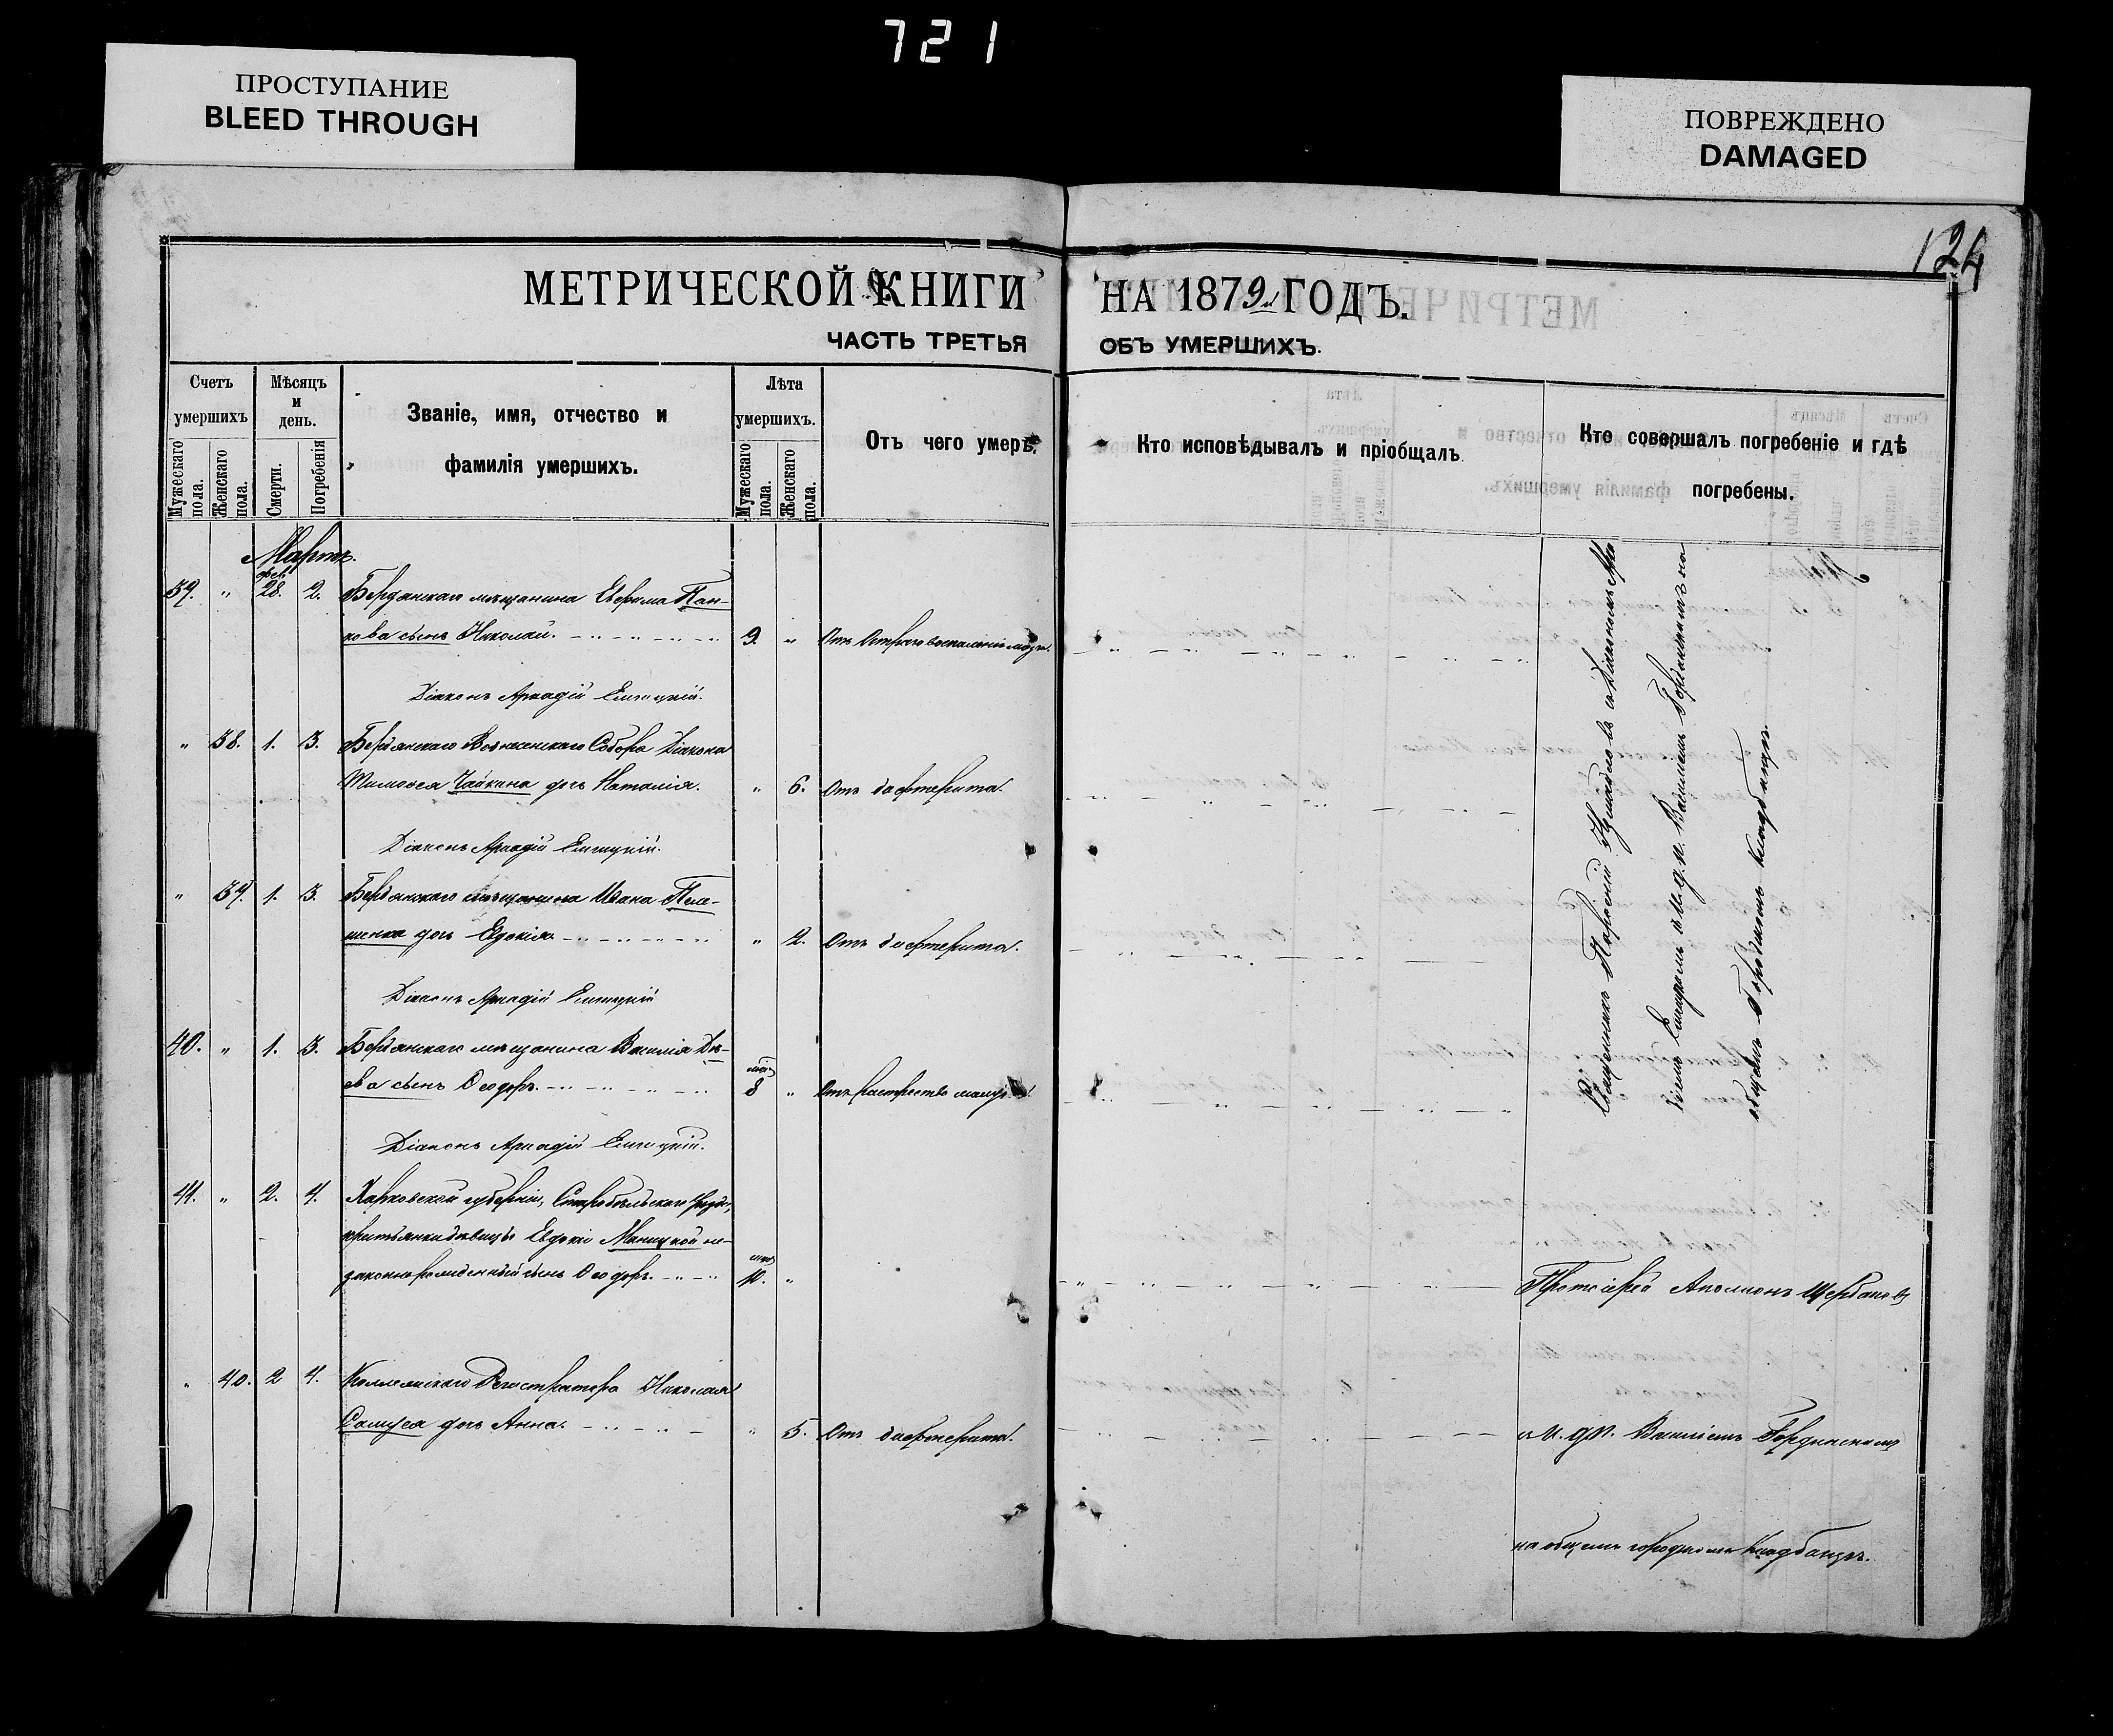 721
ПРОСТУПАНИЕ
BLEED THROUGH
ПОВРЕЖДЕНО
DAMAGED
124
МЕТРИЧЕСКОЙ КНИГИ НА 1879 й ГОДЪ.
ЧАСТЬ ТРЕТЬЯ ОБЪ УМЕРШИХЪ.
Счетъ умершихъ
Мужескаго пола.
Женскаго пола.
Мѣсяцъ и день.
Смерти.
Погребенія
Званіе, имя, отчество и
фамилія умершихъ.
Лѣта умершихъ.
Мужескаго пола.
Женскаго пола.
Отъ чего умеръ.
Кто исповѣдывалъ и пріобщалъ
Кто совершалъ погребеніе и гдѣ
погребены.
Мартъ.
фев.
39. " 28. 2. Бердянскаго мѣщанина Ефрима Пан-
кова сынъ Николай. 9. " Отъ Остраго воспаленія мозга.
Діаконъ Аркадій
" 38. 1. 3. Бердянскаго Вознесенскаго Собора Діакона
Тимоѳея Чайкина дочь Наталія. " 6. Отъ дифтерита.
Діаконъ Аркадій
" 39. 1. 3. Бердянскаго мѣщанина Ивана Пеле-
шенка дочь Евдокія. " 2. Отъ дифтерита.
Діаконъ Аркадій
40. " 1. 3. Бердянскаго мѣщанина Василія Дѣ-
ева сынъ Ѳеодоръ. 8 " Отъ
Діаконъ Аркадій
41. " 2. 4. Харковской губерніи, Старобѣльскаго уѣзда,
крестьянки дѣвицы Евдокіи Маницкой не-
законнорожденный сынъ Ѳеодоръ. 10. "
" 40. 2 4. Коллежскаго Регистратора Николая
Самуся дочь Анна. " 5. Отъ дифтерита.
Священникъ съ Діакономъ Арка
діемъ и и. д. п. Василіемъ на
общемъ Городскомъ кладбищѣ.
Протоіерей Аполлонъ Щербаковъ
и и. д. п. Василіемъ
на общемъ городскомъ кладбищѣ.